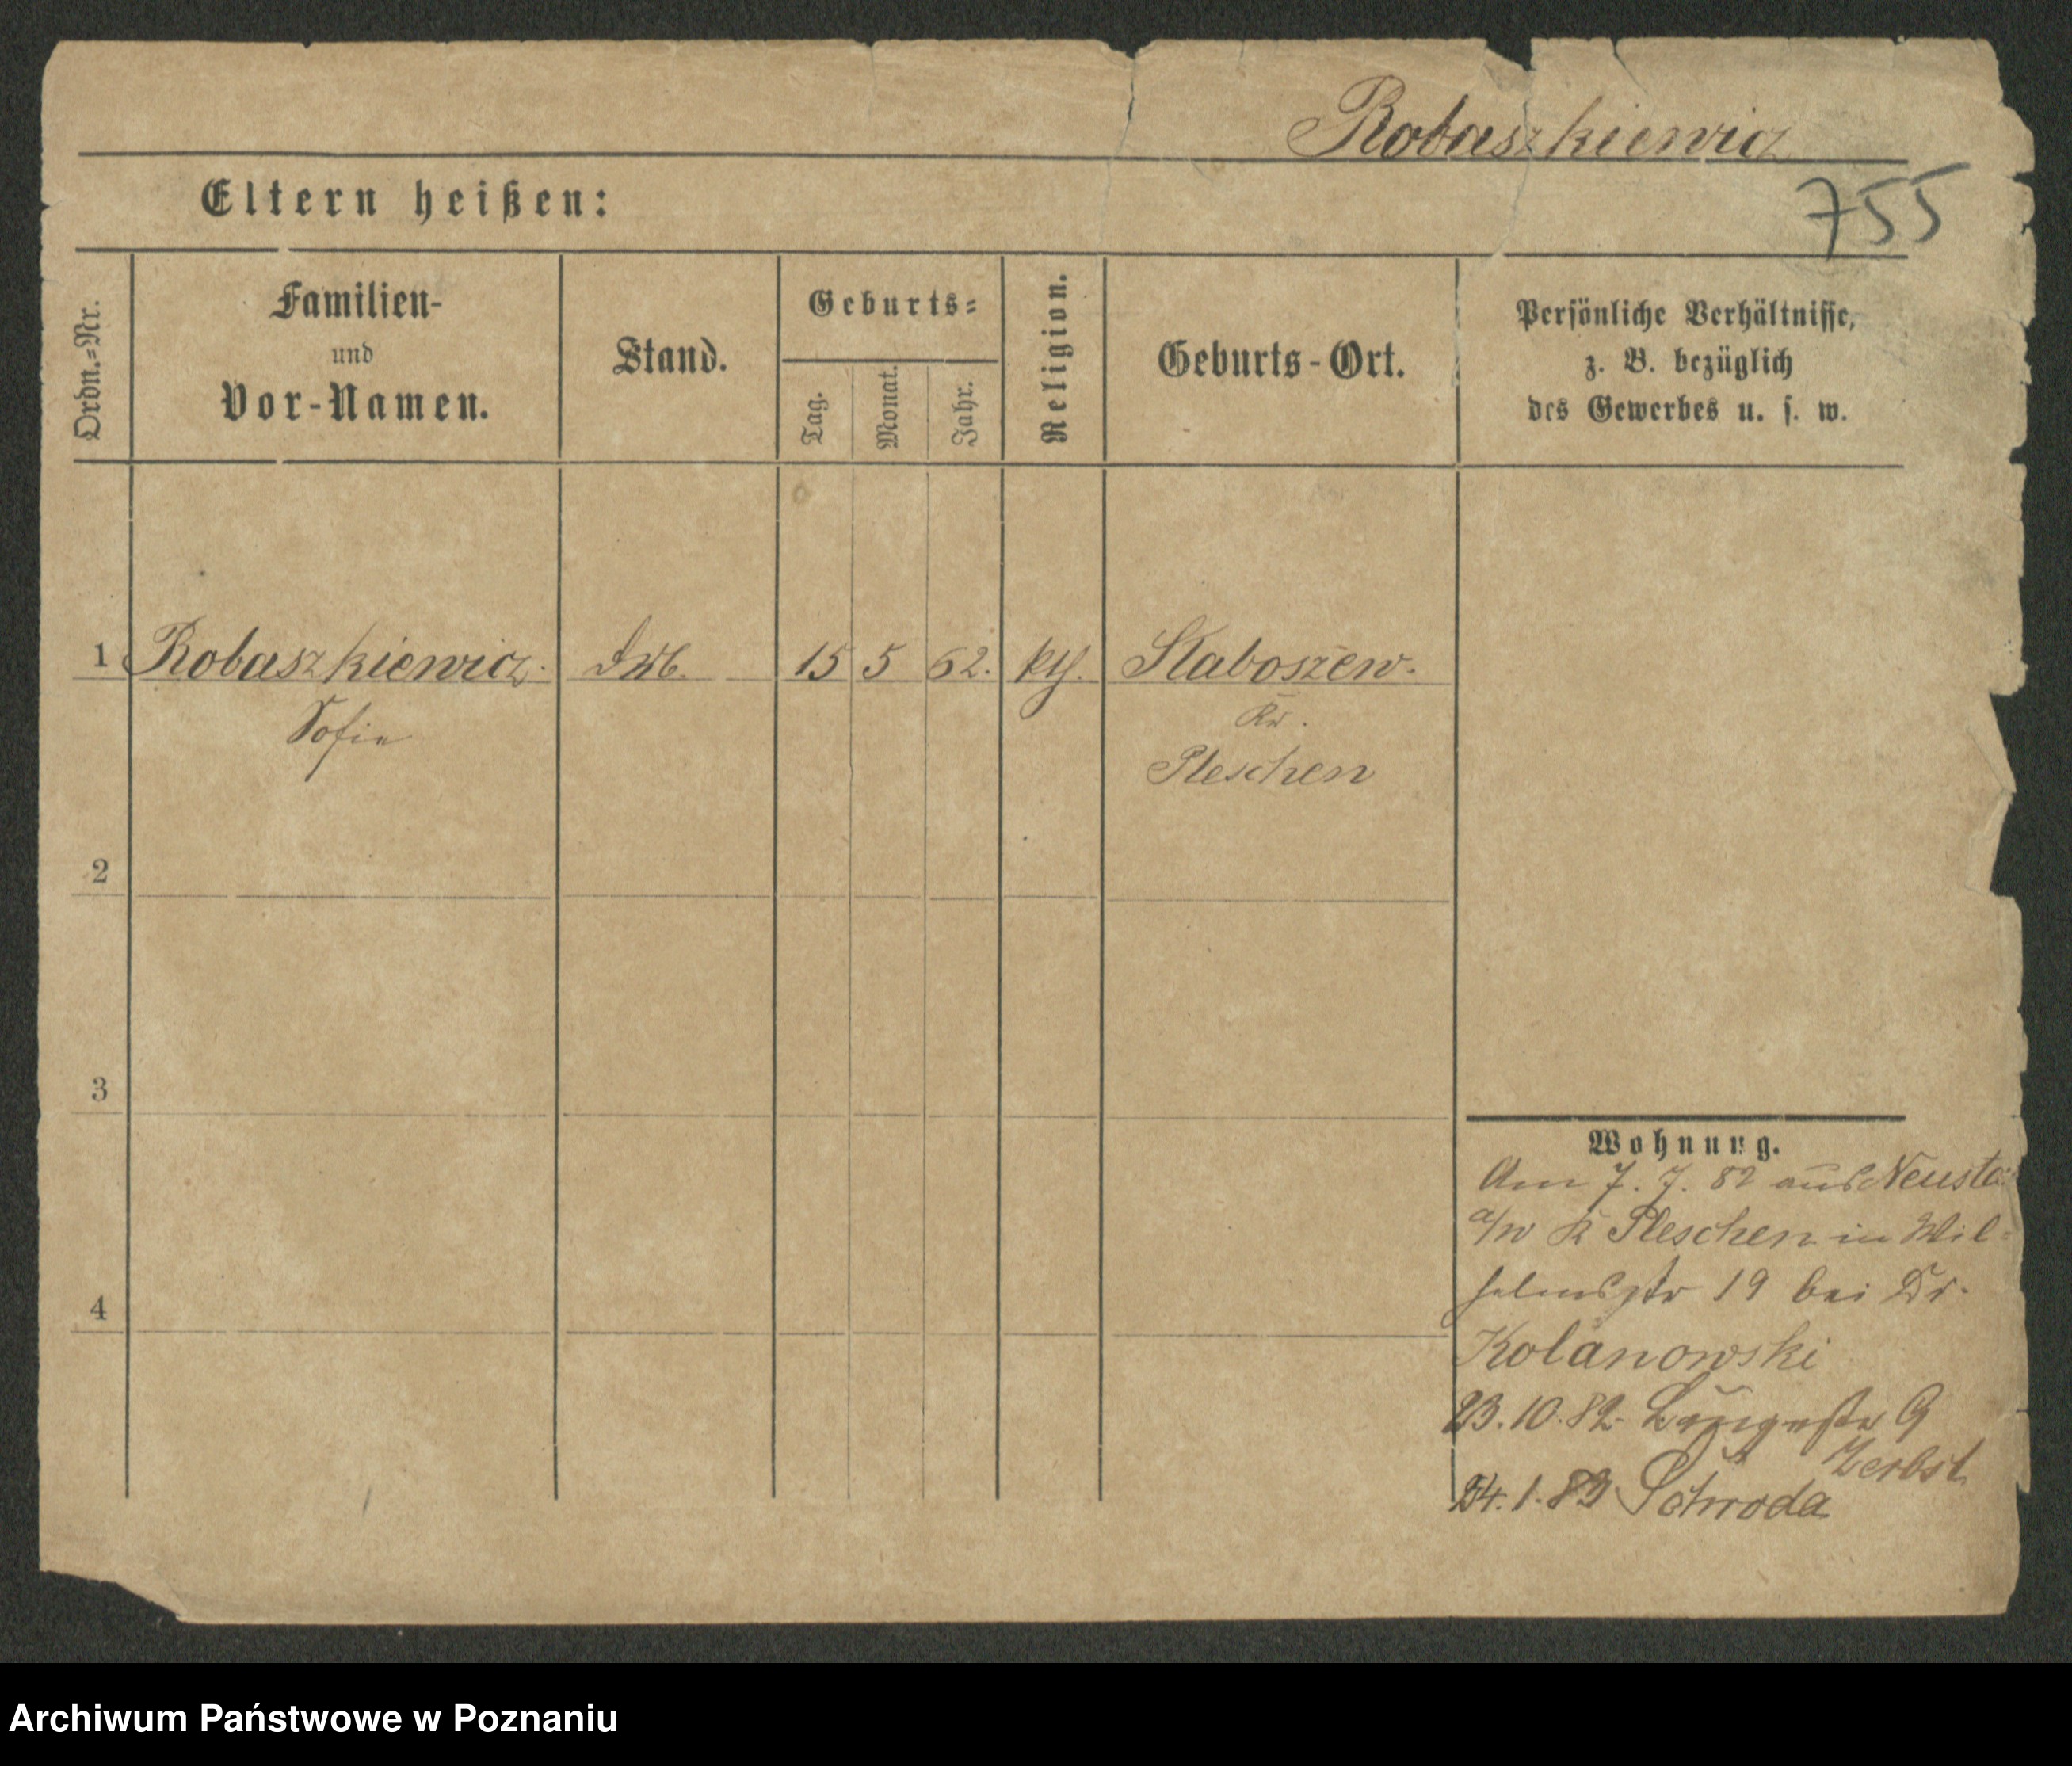 Robaszkiewicz
755
Eltern heißen:
Ordn.=Nr.
Familien-
und
Vor-Namen.
Stand.
Geburts=
Tag.
Monat.
Jahr.
Religion.
Geburts-Ort.
Persönliche Verhältnisse,
z. B. bezüglich
des Gewerbes u. s. w.
1 Robaszkiewicz. 15 5 62. kth. Staboszew.
Sofie
Kr.
Pleschen
2
3
4
Wohnung.
Am 7. 7. 82 aus Neusta
a/w K Pleschen in Wil-
helmsstr 19 bei Dr.
Kolanowski
23.10.82 Langestr 9
Zerbst
24.1.83 Schroda
Archiwum Państwowe w Poznaniu